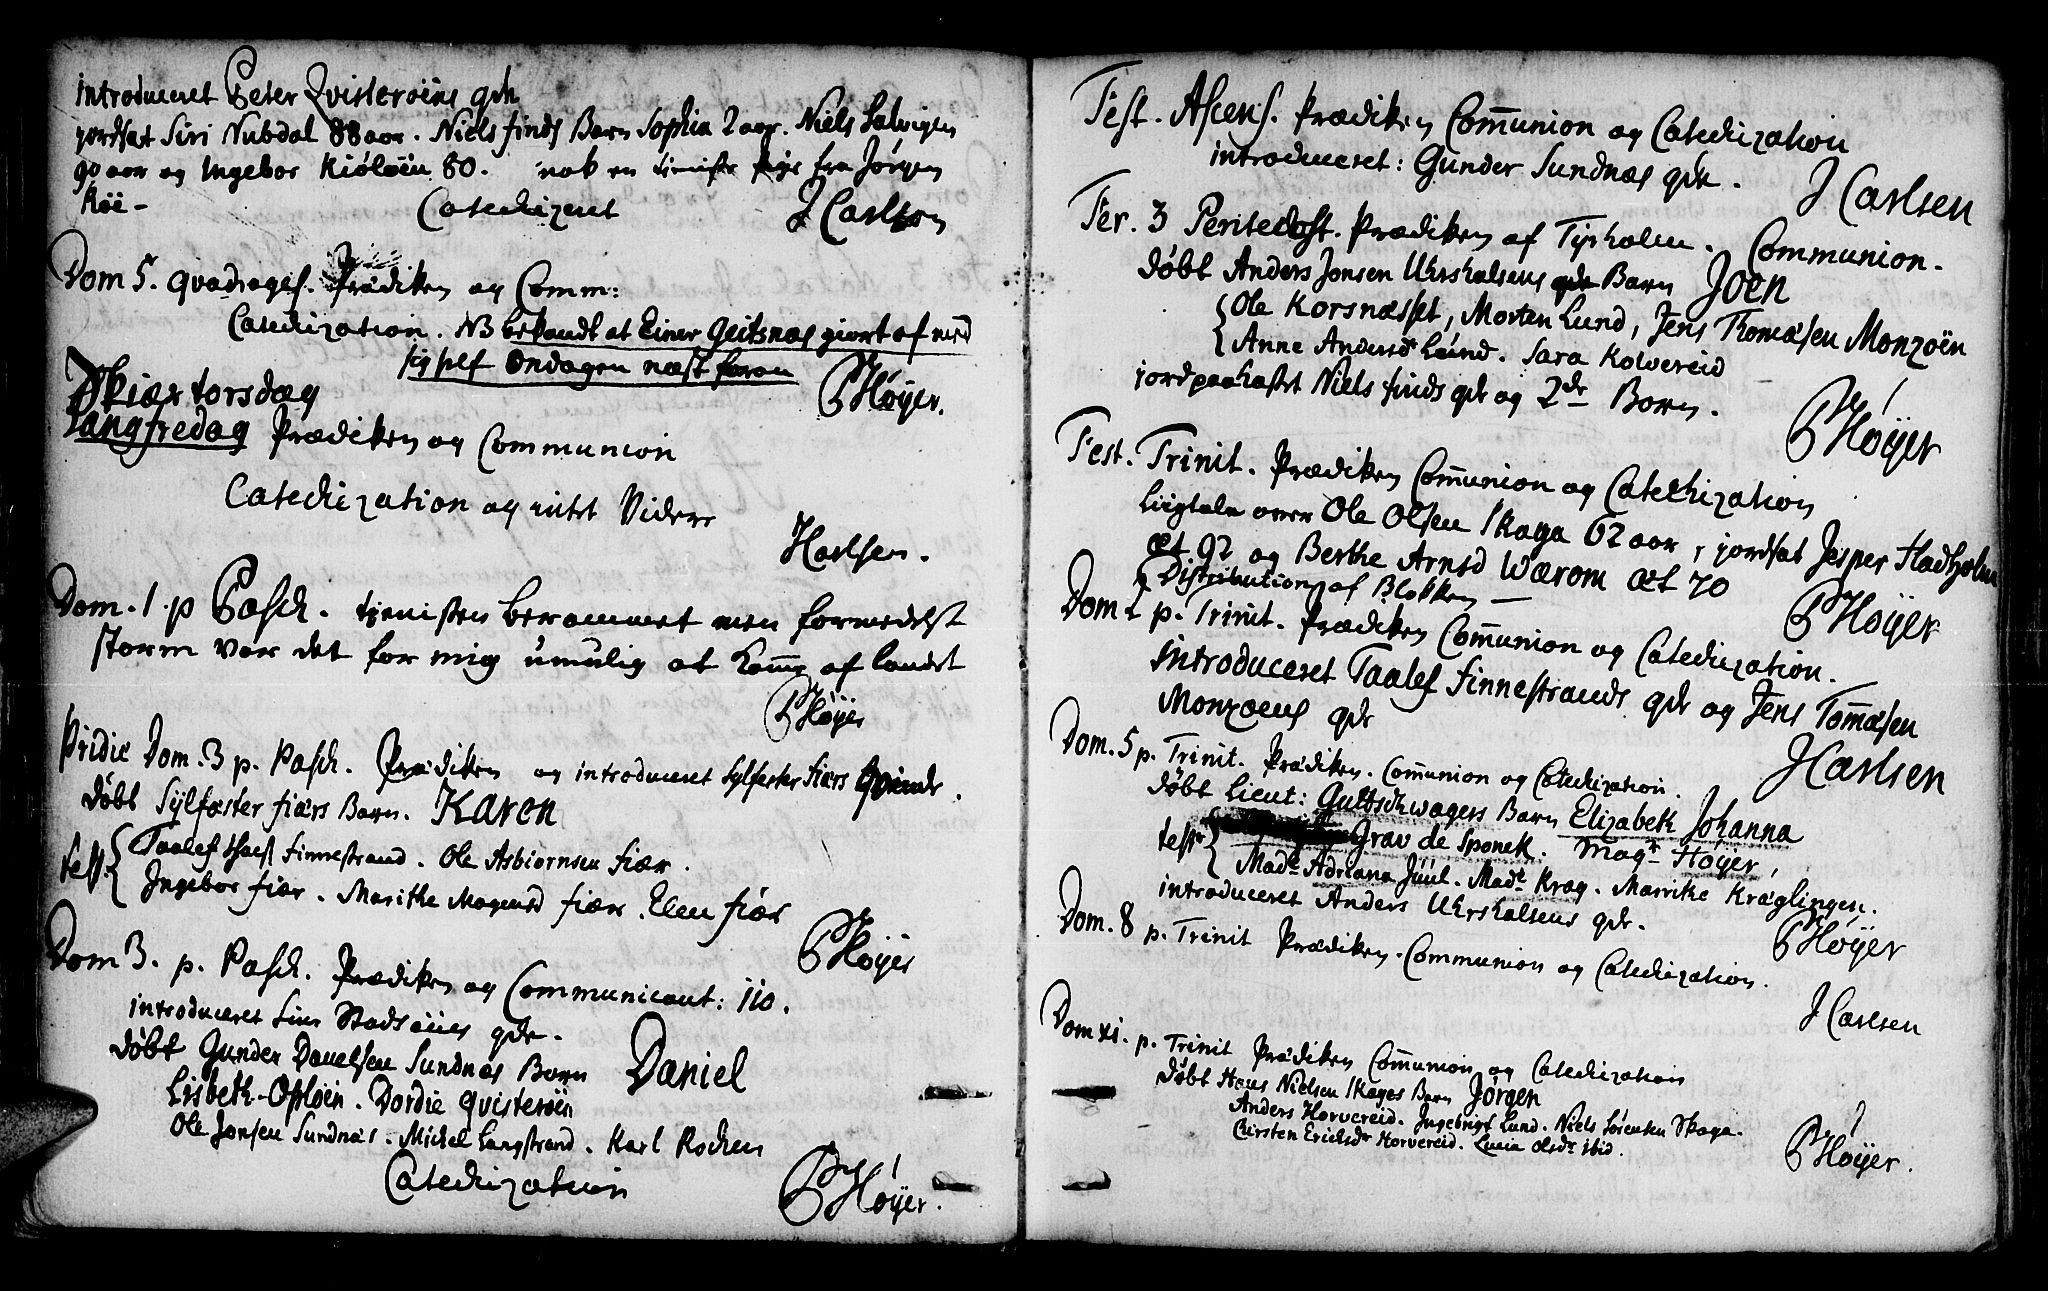 introduceret Peter Qvisterøens qde
jordfæst Siri Nubdal 88 aar. Niels finds Barn Sophia 2 aar. Niels Salvigen
90 aar og Ingebor Kiøløen 80. nok en fra Jørgen
Røe -
Catechizeret J Carlsen
Dom 5. qvadrages. Prædiken og Comm:
Catechization. NB bekandt at Einer Geitsnæs giort af med
sig self Ondagen næst foran PHøyer.
Skiær torsdag
Langfredag Prædiken og Communion
Catechization og intet Videre
JCarlsen.
Dom. 1. p Pasch. tjenisten berammet men formedelst
storm var det for mig umulig at komme af landet
PHøyer
Pridie Dom. 3 p. Pasch. Prædiken og introduceret Sylfester fiærs Qvinde.
døbt Sylfæster fiærs Barn. Karen
test. Taalef Finnestrand. Ole Asbiornsen fiær.
Ingebor fiær. Marithe Mogensd fiær. Elen fiær
PHøyer
Dom 3. p. Pasch. Prædiken og Communicant: 110.
introduceret Stadsøies qde.
døbt Gunder Danielsen Sundnæs Barn Daniel
Lisbeth Opløen. Dordie Qvisterøen
Ole Jonsen Sundnæs. Michel Langstrand. Karl Rochens
Catechization PHøyer.
Fest. Ascens. Prædiken Communion og Catechization
introduceret: Gunder Sundnæs qde.
J Carlsen
Fer. 3 Pentecost. Prædiken af Tyrholm. Communion.
døbt Anders Jonsen Uhrshalsens qde Barn Joen
Ole Korsnæsset, Morten Lund, Jens Thomæsen Monzøen
Anne Andersdr Lund. Sara Kolvereid
jordpaakastet Niels finds qde og 2de Børn.
PHøyer
Fest. Trinit. Prædiken Communion og Catechization
Liigtale over Ole Olsen Skaga 62 aar, jordfæst Jesper Hadholm
æt 92 og Berthe Arnsd Wærom æt 70
Distribution af Blokken — PHøyer
Dom 2 p. Trinit. Prædiken Communion og Catechization.
introduceret Taalef Finnestrands qde og Jens Tomæsen
Monzøens qde
JCarlsen
Dom. 5 p. Trinit. Prædiken. Communion og Catechization.
døbt Lieut: Gultschwagers Barn Elizabeth Johanna
test Grav de Sponek. Magr Høyer,
Made Adriana Juul. Made Krog. Marrithe Kræglingen.
introduceret Anders Uhrshalsens qde.
PHøyer
Dom. 8 p. Trinit Prædiken. Communion og Catechization.
J Carlsen
Dom xi. p. Trinit Prædiken Communion og Catechization
døbt Hans Nielsen Skages Barn Jørgen
Anders Horvereid. Ingebrigt Lund. Niels Sørensen Skaga.
Kirsten Ericksdr Horvereid. Lucia Olsdr ibid.
PHøyer.